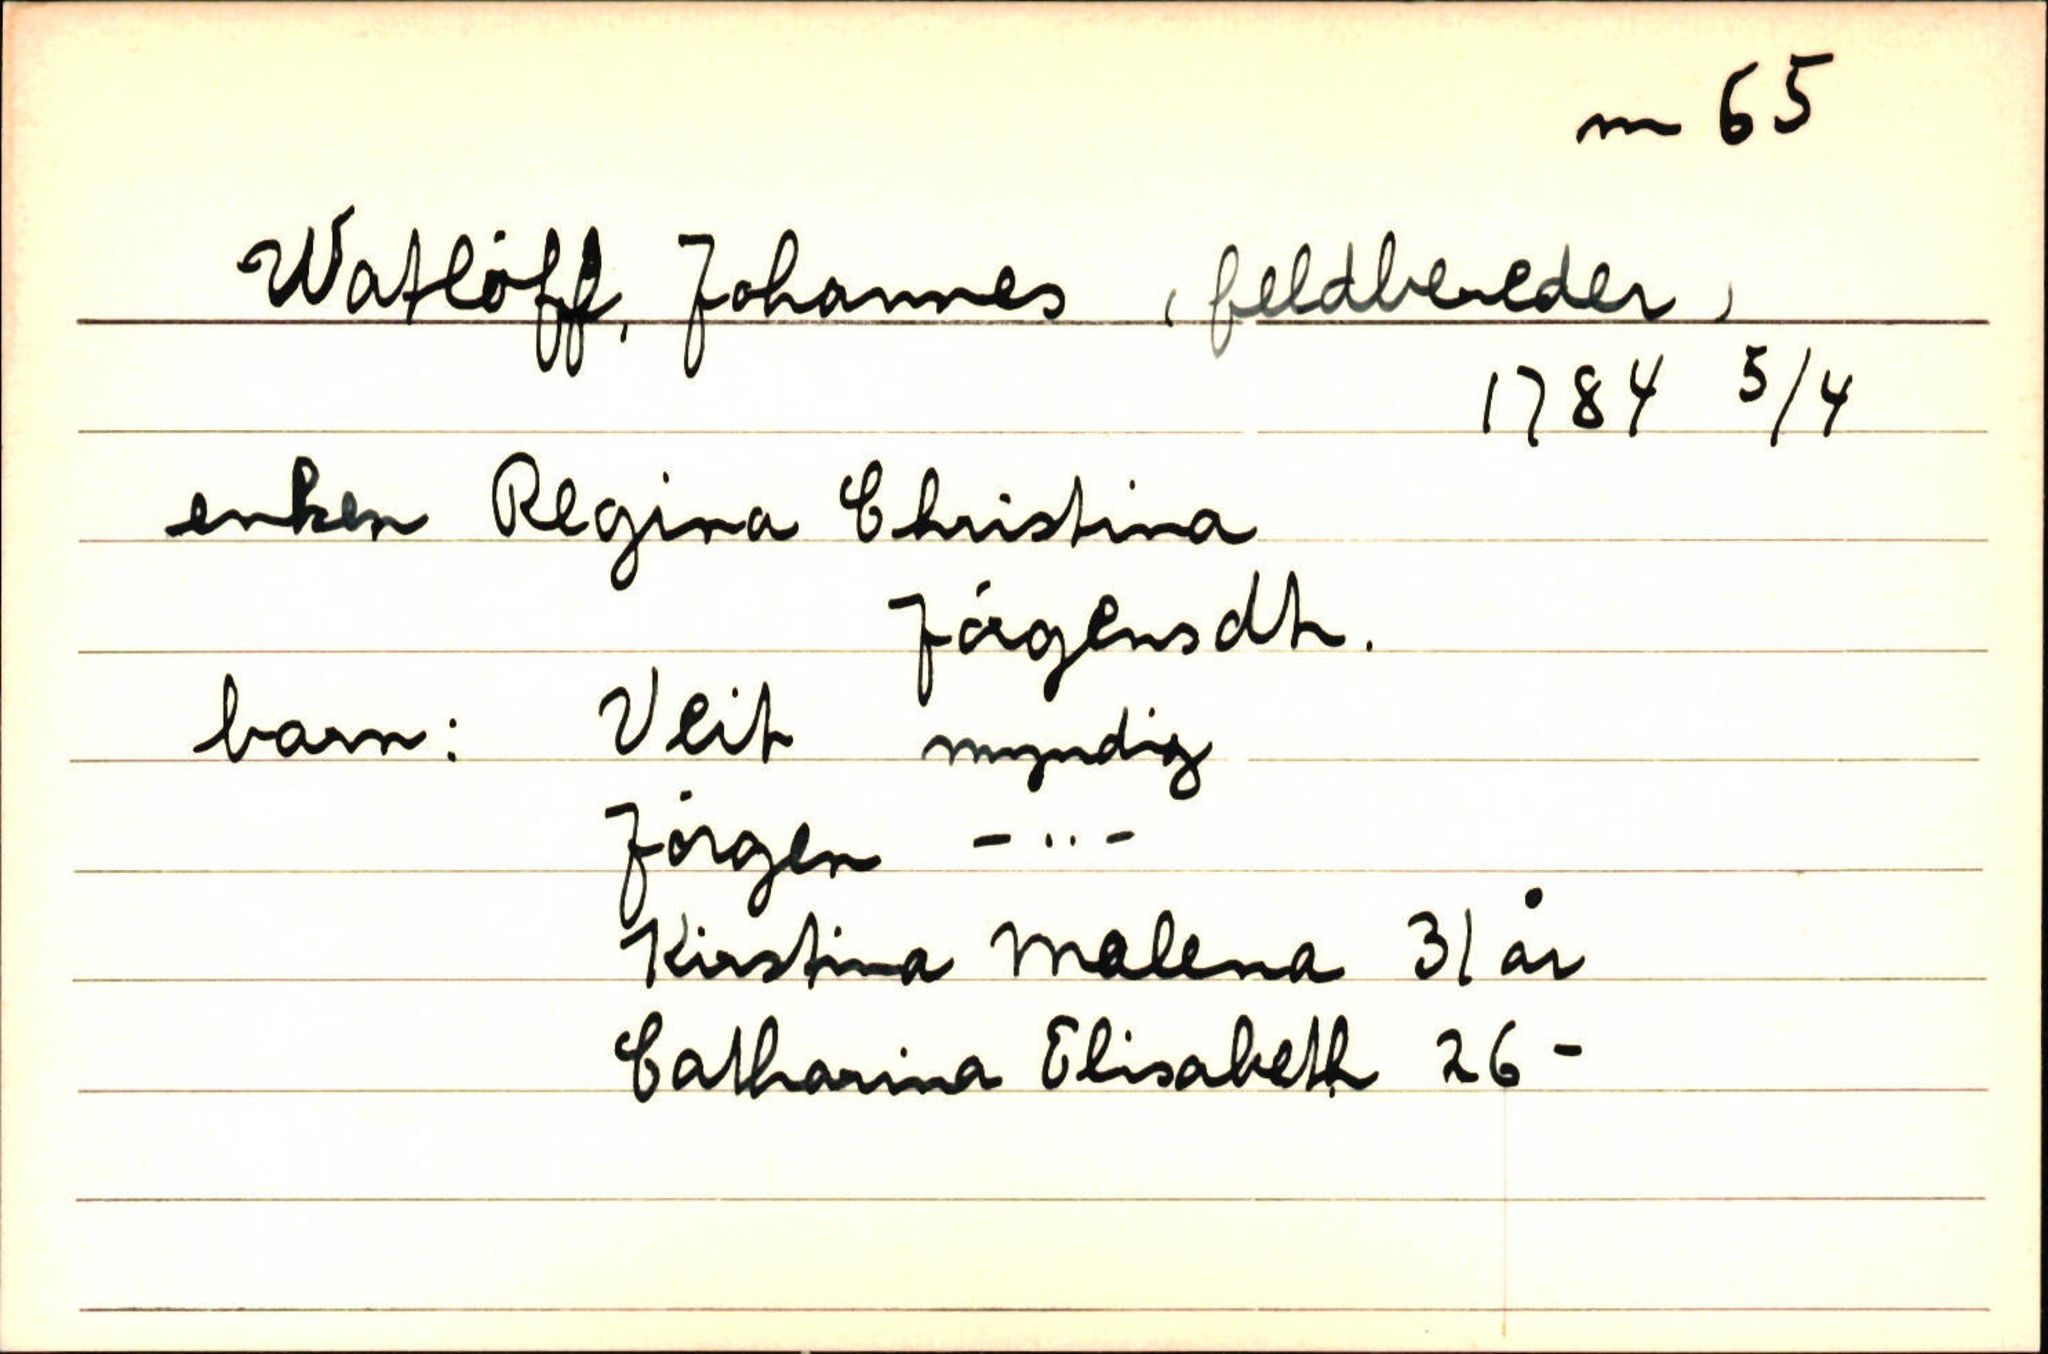 m 65
Watlöff, Johannes (feldbereder)
1784 5/4
enken Regina Christina
Jörgensdtr.
barn: Veit myndig
Jörgen - " -
Kirstina Malena 31 år
Catharina Elisabeth 26 -